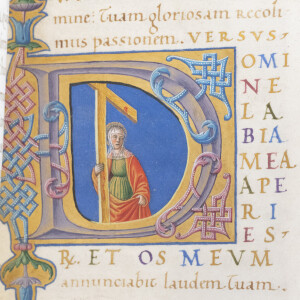 mine: Tuam gloriosam recoli
mus passionem. VERSUS
D
OMI
NE
LA
BIA
MEA
APE
RI
ES·
R. ET OS MEVM
annunciabit laudem tuam.